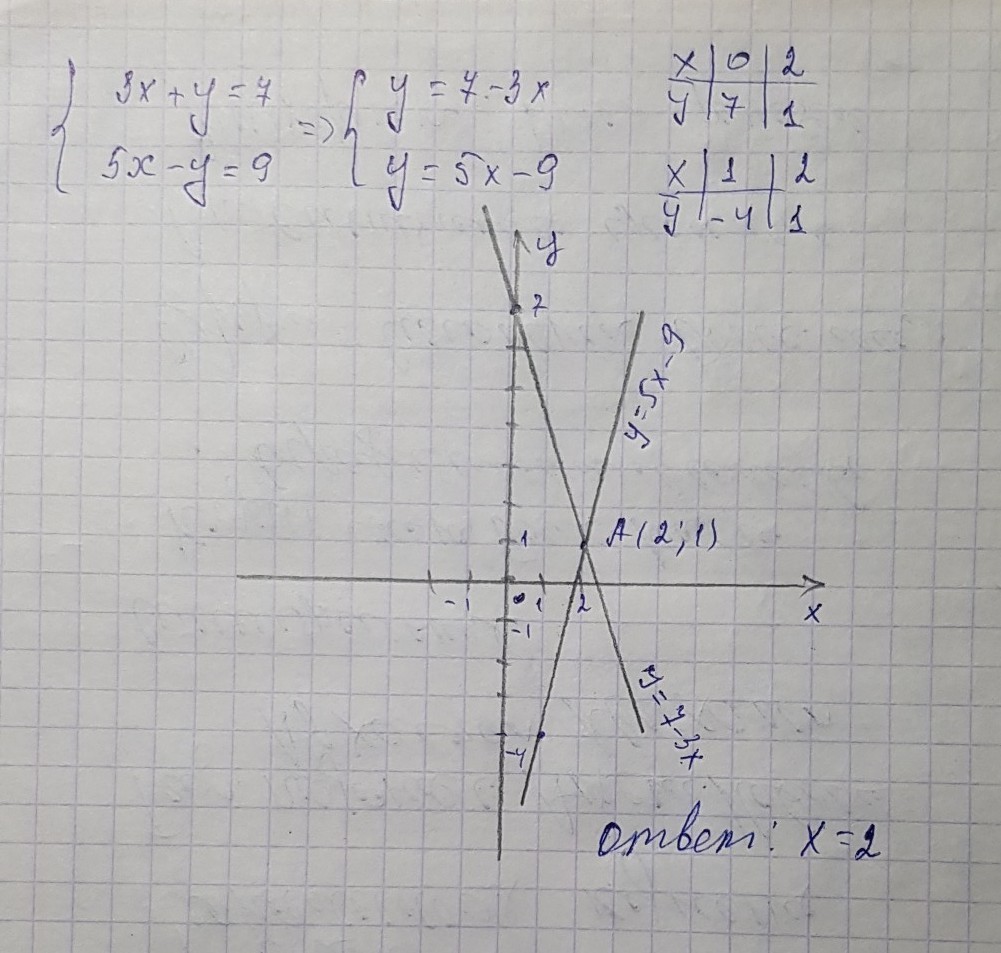 3x + y = 7 => y = 7 - 3x
5x - y = 9 y = 5x - 9
x 0 2
y 7 1
x 1 2
y -4 1
y
7
y = 5x - 9
1 A(2; 1)
-1 0 1 2
x
-1
y = 7 - 3x
-4
ответ: x = 2